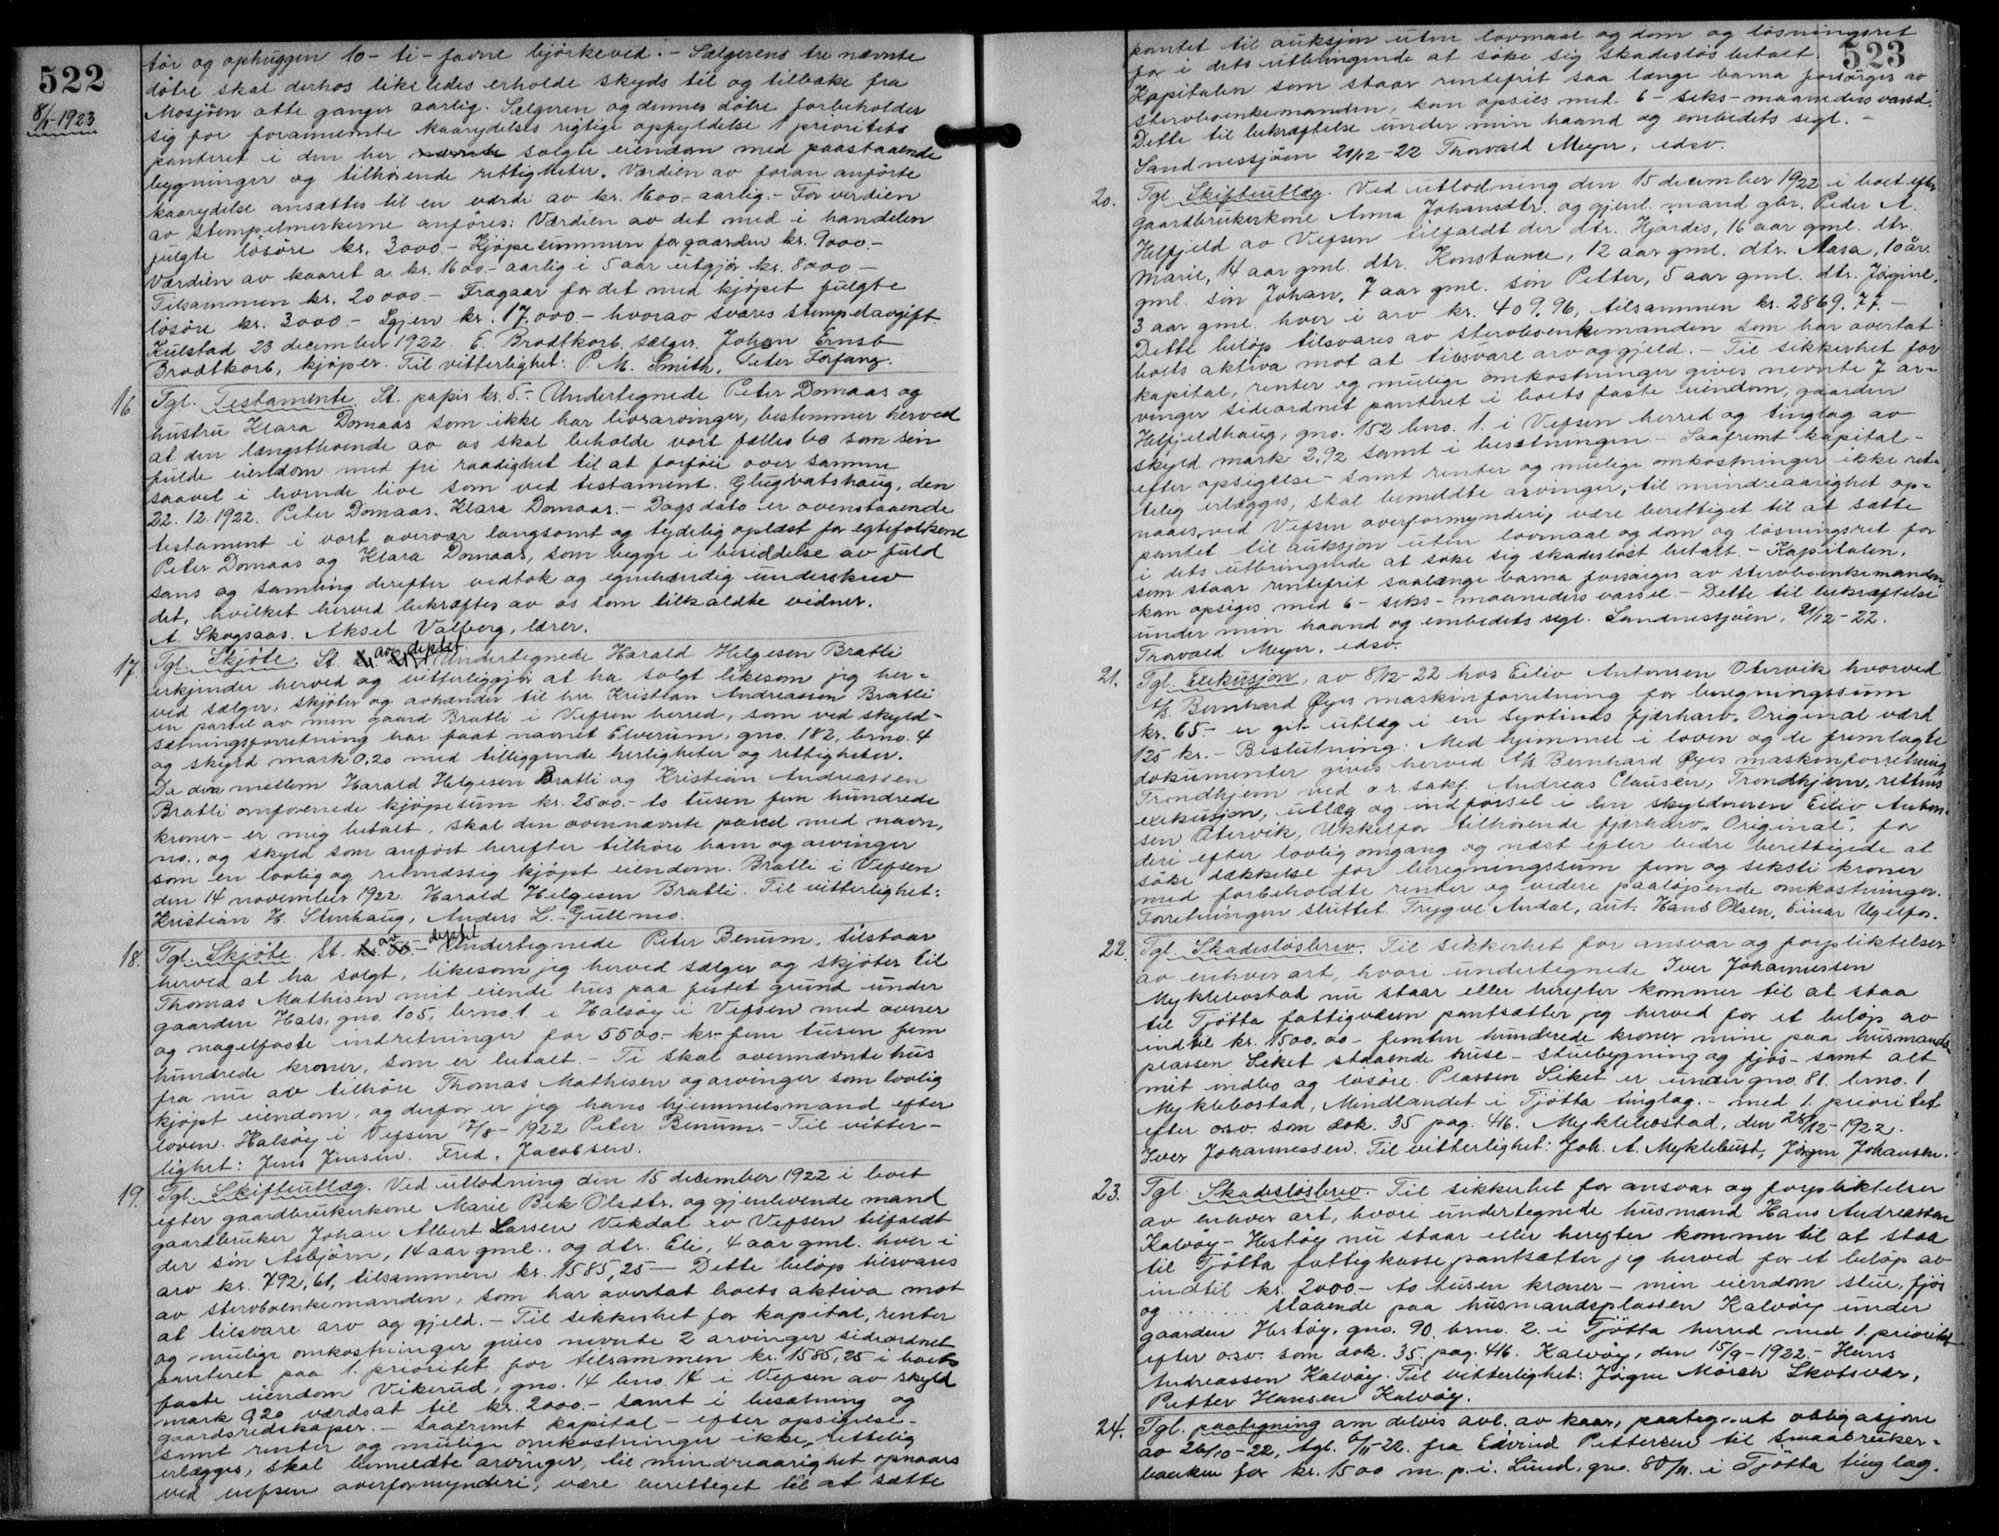 522
8/1-1923
tör og ophuggen 10 - ti - favne bjørkeved. - Sælgerens tre nævnte
dötre skal derhos likeledes erholde skyds til og tilbake fra
Mosjöen otte ganger aarlig. Sælgeren og dennes dötre forbeholder
sig for forannevnte kaarydelses rigtige opfyldelse 1 prioritets
panteret i den her solgte eiendom med paastaaende
bygninger og tilhørende rettigheter. Værdien av foran anførte
kaarydelse ansættes til en værdi av kr. 1600.- aarlig. - For verdien
av stempelmerkerne anföres: Værdien av det med i handelen
fulgte lösöre kr. 3000.- Kjöpesummen for gaarden kr. 9000.-
Værdien av kaaret a kr. 1600.- aarlig i 5 aar utgjör kr. 8000 -
Tilsammen kr. 20 000.- Fragaar for det med kjöpet fulgte
lösöre kr. 3000.- Igjen kr. 17.000 - hvorav svares stempelavgift.
Kulstad 23 december 1922. E. Brodtkorb, sælger. Johan Ernst
Brodtkorb, kjöper. Til vitterlighet: P. M. Smith, Peter Forfang.
16. Tgl. Testamente. St. papir kr. 5.- Undertegnede Peter Domaas og
hustru Klara Domaas som ikke har livsarvinger, bestemmer herved
at den længstlevende av os skal beholde vort fælles bo som sin
fulde eiendom med fri raadighet til at forföie over samme
saavel i levende live som ved testament. Glugvatshaug, den
22.12.1922. Peter Domaas. Klara Domaas. - Dags dato er ovenstaaende
testament i vort overvær langsomt og tydelig oplæst for egtefolkene
Peter Domaas og Klara Domaas, som begge i besiddelse av fuld
sans og samling derefter vedtok og egenhændig underskrev
det, hvilket herved bekræftes av os som tilkaldte vidner.
A. Skogsaas. Aksel Valberg, lærer.
17. Tgl. Skjöte. St. av deplet Undertegnede Harald Helgesen Bratli
erkjender herved og vitterliggjör at ha solgt likesom jeg her-
ved sælger, skjöter og avhænder til hr. Kristian Andreassen Bratli
en parsel av min gaard Bratli i Vefsen herred, som ved skyld-
sætningsforretning har faat navnet Elverum, gno. 182, brno. 4
og skyld mark 0,20 med tilliggende herligheter og rettigheter.
Da den mellem Harald Helgesen Bratli og Kristian Andreassen
Bratli omforenede kjöpesum kr. 2500.- to tusen fem hundrede
kroner - er mig betalt, skal den ovennævnte parcel med navn,
no., og skyld som anfört herefter tilhöre ham og arvinger
som en lovlig og retmæssig kjöpt eiendom. Bratli i Vefsen
den 14 november 1922. Harald Helgesen Bratli. Til vitterlighet:
Kristian H. Stenhaug, Anders L. Gullmo.
18. Tgl. Skjöte. St. av deplet Undertegnede Peter Benum, tilstaar
herved at ha solgt, likesom jeg herved sælger og skjöter til
Thomas Mathisen mit eiende hus paa festet grund under
gaarden Hals, gno. 105, brno. 1 i Halsöy i Vefsen med ovner
og nagelfaste indretninger for 5500.- kr. fem tusen fem
hundrede kroner, som er betalt. - Ti skal ovennævnte hus
fra nu av tilhöre Thomas Mathisen og arvinger som lovlig
kjöpt eiendom, og derfor er jeg hans hjemmelsmand efter
loven. Halsöy i Vefsen 17/8-1922 Peter Benum. - Til vitter-
lighet: Jens Jensen. Fred. Jacobsen.
19. Tgl. Skifteutlæg. Ved utlodning den 15 december 1922 i boet
efter gaardbrukerkone Marie Bek Olsdtr. og gjenlevende mand
gaardbruker Johan Albert Larsen Vikdal av Vefsen tilfaldt
der sön Asbjörn, 14 aar gml., og dtr. Eli, 4 aar gml. hver i
arv kr. 792,61, tilsammen kr. 1585,25 - Dette belöp tilsvares
av stervboenkemanden, som har overtat boets aktiva mot
at tilsvare arv og gjeld. - Til sikkerhet for kapital, renter
og mulige omkostninger gives nevnte 2 arvinger sideordnet
panteret paa 1. prioritet for tilsammen kr. 1585,25 i boets
faste eiendom Vikerud, gno. 14 bno. 14 i Vefsen av skyld
mark 0,20 værdsat til kr. 2000.- samt i besætning og
gaardsredskaper. - Saafremt kapital - efter opsigelse -
samt renter og mulige omkostninger ikke rettelig
erlægges, skal bemeldte arvinger, til mindreaarighet opnaaes
ved Vefsen overformynderi, være berettiget til at sætte
523
pantet til auksjon uten lovmaal og dom og lösningsret
for i dets utbringende at söke sig skadeslös betalt.
Kapitalen som staar rentefrit saa længe barna forsörges av
stervboenkemanden, kan opsies med 6 - seks - maaneders varsel.
Dette til bekræftelse under min haand og embedets segl. -
Sandnessjöen 21/12-22 Thorvald Meyer, edsv.
20. Tgl. Skifteutlæg. Ved utlodning den 15 december 1922 i boet efter
gaardbrukerkone Anna Johansdtr. og gjenl. mand gbr. Peder A.
Helfjeld av Vefsen tilfaldt der dtr. Hjördis, 16 aar gml. dtr.
Marie, 14 aar gml. dtr. Konstanse, 12 aar gml. dtr. Aasa, 10 år
gml. sön Johan, 7 aar gml. sön Petter, 5 aar gml. dtr. Jörgine,
3 aar gml. hver i arv kr. 409.96, tilsammen kr. 2869.77. -
Dette belöp tilsvares av stervboenkemanden som har overtat
boets aktiva mot at tilsvare arv og gjeld. - Til sikkerhet for
kapital, renter og mulige omkostninger gives nevnte 7 ar-
vinger sideordnet panteret i boets faste eiendom, gaarden
Helfjeldhaug, gno. 152 bno. 1. i Vefsen herred og tinglag av
skyld mark 2.92 samt i besætningen - Saafremt kapital -
efter opsigelse - samt renter og mulige omkostninger ikke ret-
telig erlægges, skal bemeldte arvinger, til mindreaarighet op-
naaes, ved Vefsen overformynderi, være berettiget til at sætte
pantet til auksjon uten lovmaal og dom og lösningsret for
i dets utbringende at söke sig skadeslöst betalt. - Kapitalen,
som staar rentefrit saalænge barna forsörges av stervboenkemanden,
kan opsiges med 6 - seks - maaneders varsel. - Dette til bekræftelse
under min haand og embedets segl. Sandnessjöen, 21/12-22.
Thorvald Meyer, edsv.
21. Tgl. Exekusjon, av 8/12-22 hos Eiliv Antonsen Otervik hvorved
A/S. Bernhard Øyes maskinforretning for beregningssum
kr. 65 - er git utlæg i en syvtinds fjærharv. Original værd
125 kr. - Beslutning: Med hjemmel i loven og de fremlagte
dokumenter gives herved A/S Bernhard Øyes maskinforretning
Trondhjem ved o.r. sakf. Andreas Clausen, Trondhjem, rettens
exekusjon, utlæg og indförsel i en skyldneren Eiliv Anton-
sen Otervik, Ukkelfor tilhörende fjærharv „Original“, for
deri efter lovlig omgang og næst efter bedre berettigede at
söke dækkelse for beregningssum fem og seksti kroner
med forbeholdte renter og videre paalöpende omkostninger.
Forretningen sluttet. Trygve Andal, aut. Hans Olsen, Einar Ugelfor.
22. Tgl. Skadeslösbrev. Til sikkerhet for ansvar og forpliktelser
av enhver art, hvori undertegnede Iver Johannessen
Myklebostad nu staar eller herefter kommer til at staa
til Tjötta fattigvæsen pantsætter jeg herved for et belöp av
indtil kr. 1500,00 - femten hundrede kroner mine paa husmands
plassen Siket staaende huse - stuebygning og fjös - samt alt
mit indbo og lösöre. Plassen Siket er under gno. 81. brno. 1
Myklebostad, Mindlandet i Tjötta tinglag. - med 1. prioritet
efter o.s.v. som dok. 35 pag. 416. Myklebostad, den 28/12-1922.
Iver Johannessen. Til vitterlighet: Joh. A. Myklebust, Jörgen Johansen.
23. Tgl. Skadeslösbrev. Til sikkerhet for ansvar og forpliktelser
av enhver art, hvori undertegnede husmand Hans Andreassen
Kalvöy - Hestöy nu staar eller herefter kommer til at staa
til Tjötta fattigkasse pantsætter jeg herved for et belöp av
indtil kr. 2000.- to tusen kroner - min eiendom stue, fjös
og ........ staaende paa husmandsplassen Kalvöy under
gaarden Hestöy, gno. 90. brno. 2. i Tjötta herred med 1. prioritet
efter o.s.v. som dok. 35. pag. 416. Kalvöy, den 15/9-1922. - Hans
Andreassen Kalvöy. Til vitterlighet: Jörgen Mörch Skotsvær,
Petter Hansen Kalvöy.
24. Tgl. paategning om delvis avl. av kaar, paateg. et obligasjon
av 26/10-22, tgl. 6/11-22. fra Edvind Pettersen til Smaabruker-
banken for kr. 1500 m. p. i. Lund, gno. 80/11. i Tjötta tinglag.